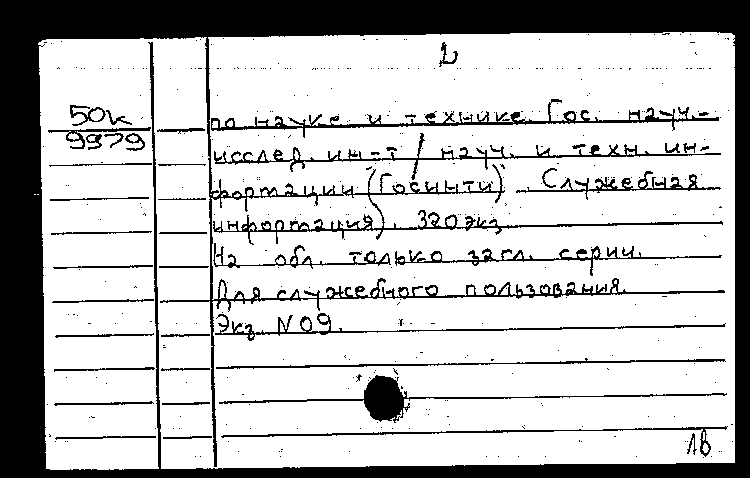 2
50к
9979
по науке и технике. Гос. науч.-
исслед. ин-т науч. и техн. ин-
формации (Госинти). Служебная
информация). 320 экз.
На обл. только загл. серии.
Для служебного пользования.
Экз. N 09.